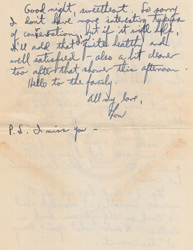 Good night, sweetheart. So sorry
I don't have more interesting topics
of conversation, but if it will help,
I'll add that I'm quite healthy and
well satisfied - also a bit cleaner
too after that shower this afternoon.
Hello to the family.
All my love,
P.S. I miss you -